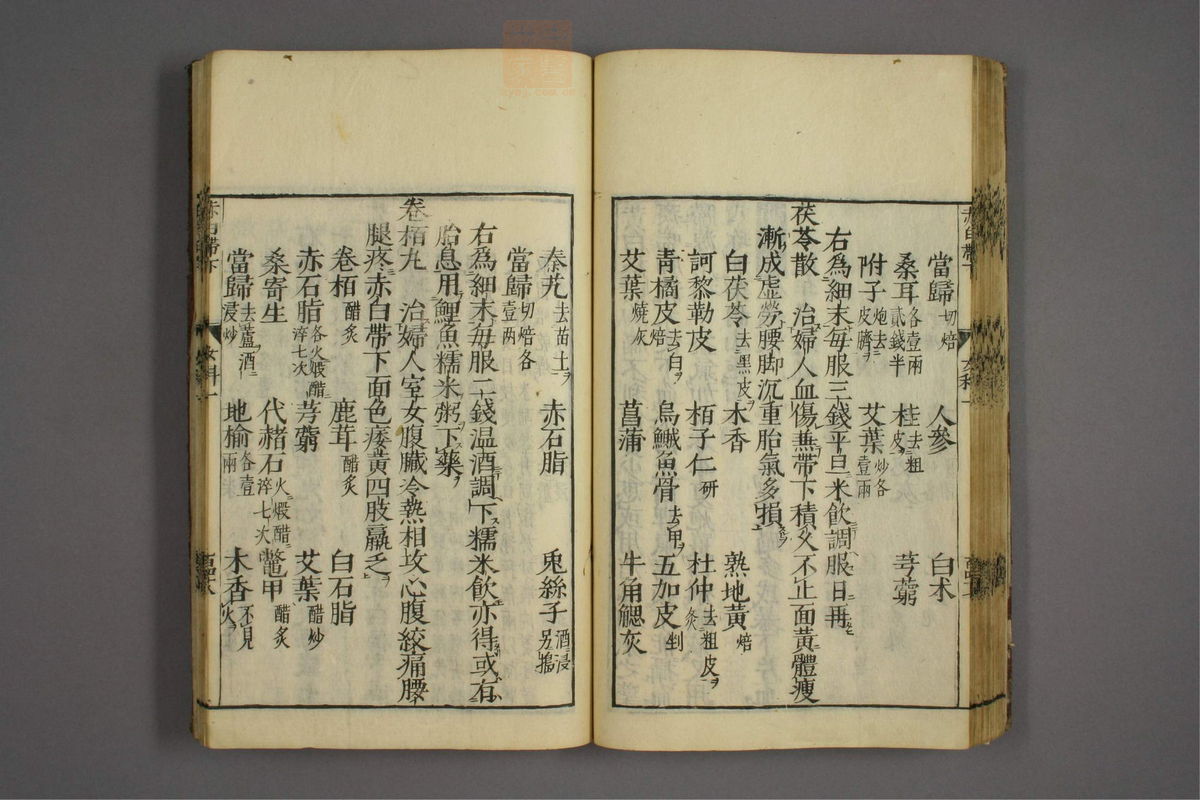 當歸切焙 人參 白朮
桑耳各壹兩貳錢半 桂去粗皮 芎藭
附子炮去皮臍 艾葉炒各壹兩
右爲細末每服三錢平旦米飲調服日再
茯苓散 治婦人血傷無帶下積久不止面黃體瘦
漸成虛勞腰脚沉重胎氣多損
白茯苓去黑皮 木香 熟地黃焙
訶黎勒皮 栢子仁研 杜仲去粗皮炙
青橘皮去白焙 烏鰂魚骨去甲 五加皮剉
艾葉燒灰 菖蒲 牛角䚡灰
秦艽去苗土 赤石脂 兎絲子酒浸另搗
當歸切焙各壹兩
右爲細末每服二錢温酒調下糯米飲亦得或有
胎息用鯉魚糯米粥下藥
卷栢丸 治婦人室女腹臟冷熱相攻心腹絞痛腰
腿疼赤白帶下面色痿黃四肢羸乏
卷栢醋炙 鹿茸醋炙 白石脂
赤石脂各火煅醋淬七次 芎藭 艾葉醋炒
桑寄生 代赭石火煅醋淬七次 鼈甲醋炙
當歸去蘆酒浸炒 地榆各壹兩 木香不見火